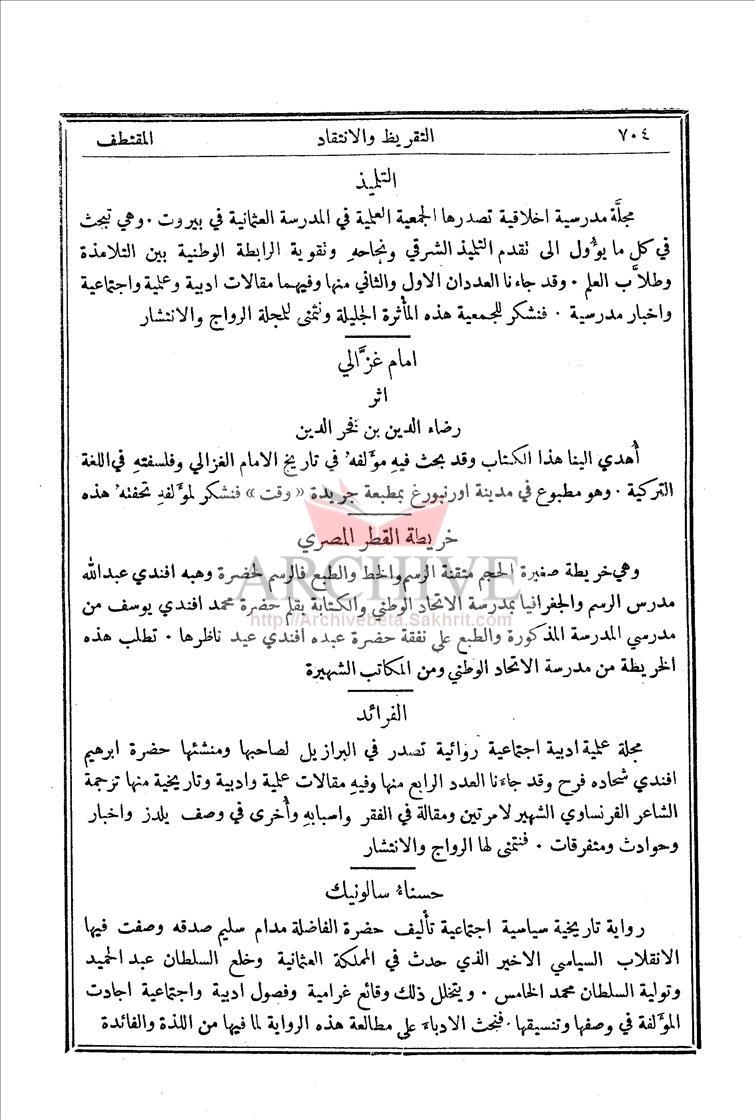 ٧٠٤ التقريظ والانتقاد المقتطف
التلميذ
مجلَّة مدرسية اخلاقية تصدرها الجمعية العلمية في المدرسة العثمانية في بيروت . وهي تبحث
في كل ما يؤُول الى نقدم التلميذ الشرقي ونجاحهِ ونقوية الرابطة الوطنية بين التلامذة
وطلاَّب العلم . وقد جاءنا العددان الاول والثاني منها وفيهما مقالات ادبية وعلمية واجتماعية
واخبار مدرسية . فنشكر للجمعية هذه المأثرة الجليلة ونتمنى للمجلة الرواج والانتشار
امام غزَّالي
اثر
رضاء الدين بن فخر الدين
أُهدي الينا هذا الكتاب وقد بحث فيهِ مؤلفهُ في تاريخ الامام الغزالي وفلسفتهِ في اللغة
التركية . وهو مطبوع في مدينة اورنبورغ بمطبعة جريدة « وقت » فنشكر لمؤلفهِ تحفتهُ هذه
خريطة القطر المصري
وهي خريطة صغيرة الحجم متقنة الرسم والخط والطبع فالرسم لحضرة وهبه افندي عبدالله
مدرس الرسم والجغرافيا بمدرسة الاتحاد الوطني والكتابة بقلم حضرة محمد افندي يوسف من
مدرسي المدرسة المذكورة والطبع على نفقة حضرة عبده افندي عيد ناظرها . تطلب هذه
الخريطة من مدرسة الاتحاد الوطني ومن المكاتب الشهيرة
الفرائد
مجلة علمية ادبية اجتماعية روائية تصدر في البرازيل لصاحبها ومنشئها حضرة ابرهيم
افندي شحاده فرح وقد جاءنا العدد الرابع منها وفيهِ مقالات علمية وادبية وتاريخية منها ترجمة
الشاعر الفرنساوي الشهير لامرتين ومقالة في الفقر واسبابهِ وأُخرى في وصف يلدز واخبار
وحوادث ومتفرقات . فنتمنى لها الرواج والانتشار
حسناءُ سالونيك
رواية تاريخية سياسية اجتماعية تأليف حضرة الفاضلة مدام سليم صدقه وصفت فيها
الانقلاب السياسي الاخير الذي حدث في المملكة العثمانية وخلع السلطان عبد الحميد
وتولية السلطان محمد الخامس . ويتخلل ذلك وقائع غرامية وفصول ادبية واجتماعية اجادت
المؤلفة في وصفها وتنسيقها . فنحث الادباءَ على مطالعة هذه الرواية لما فيها من اللذة والفائدة
ARCHIVE
http://Archivebeta.Sakhrit.com